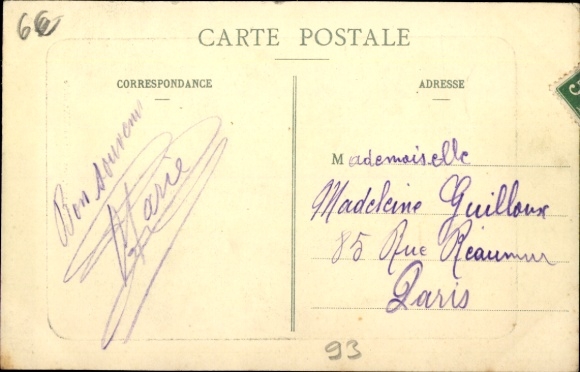 66
CARTE POSTALE
CORRESPONDANCE
Bon souvenir
Marie
ADRESSE
Mademoiselle
Madeleine Guilloux
85 Rue Réaumur
Paris
93